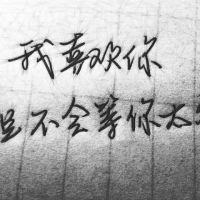 我喜欢你
是不会等你太